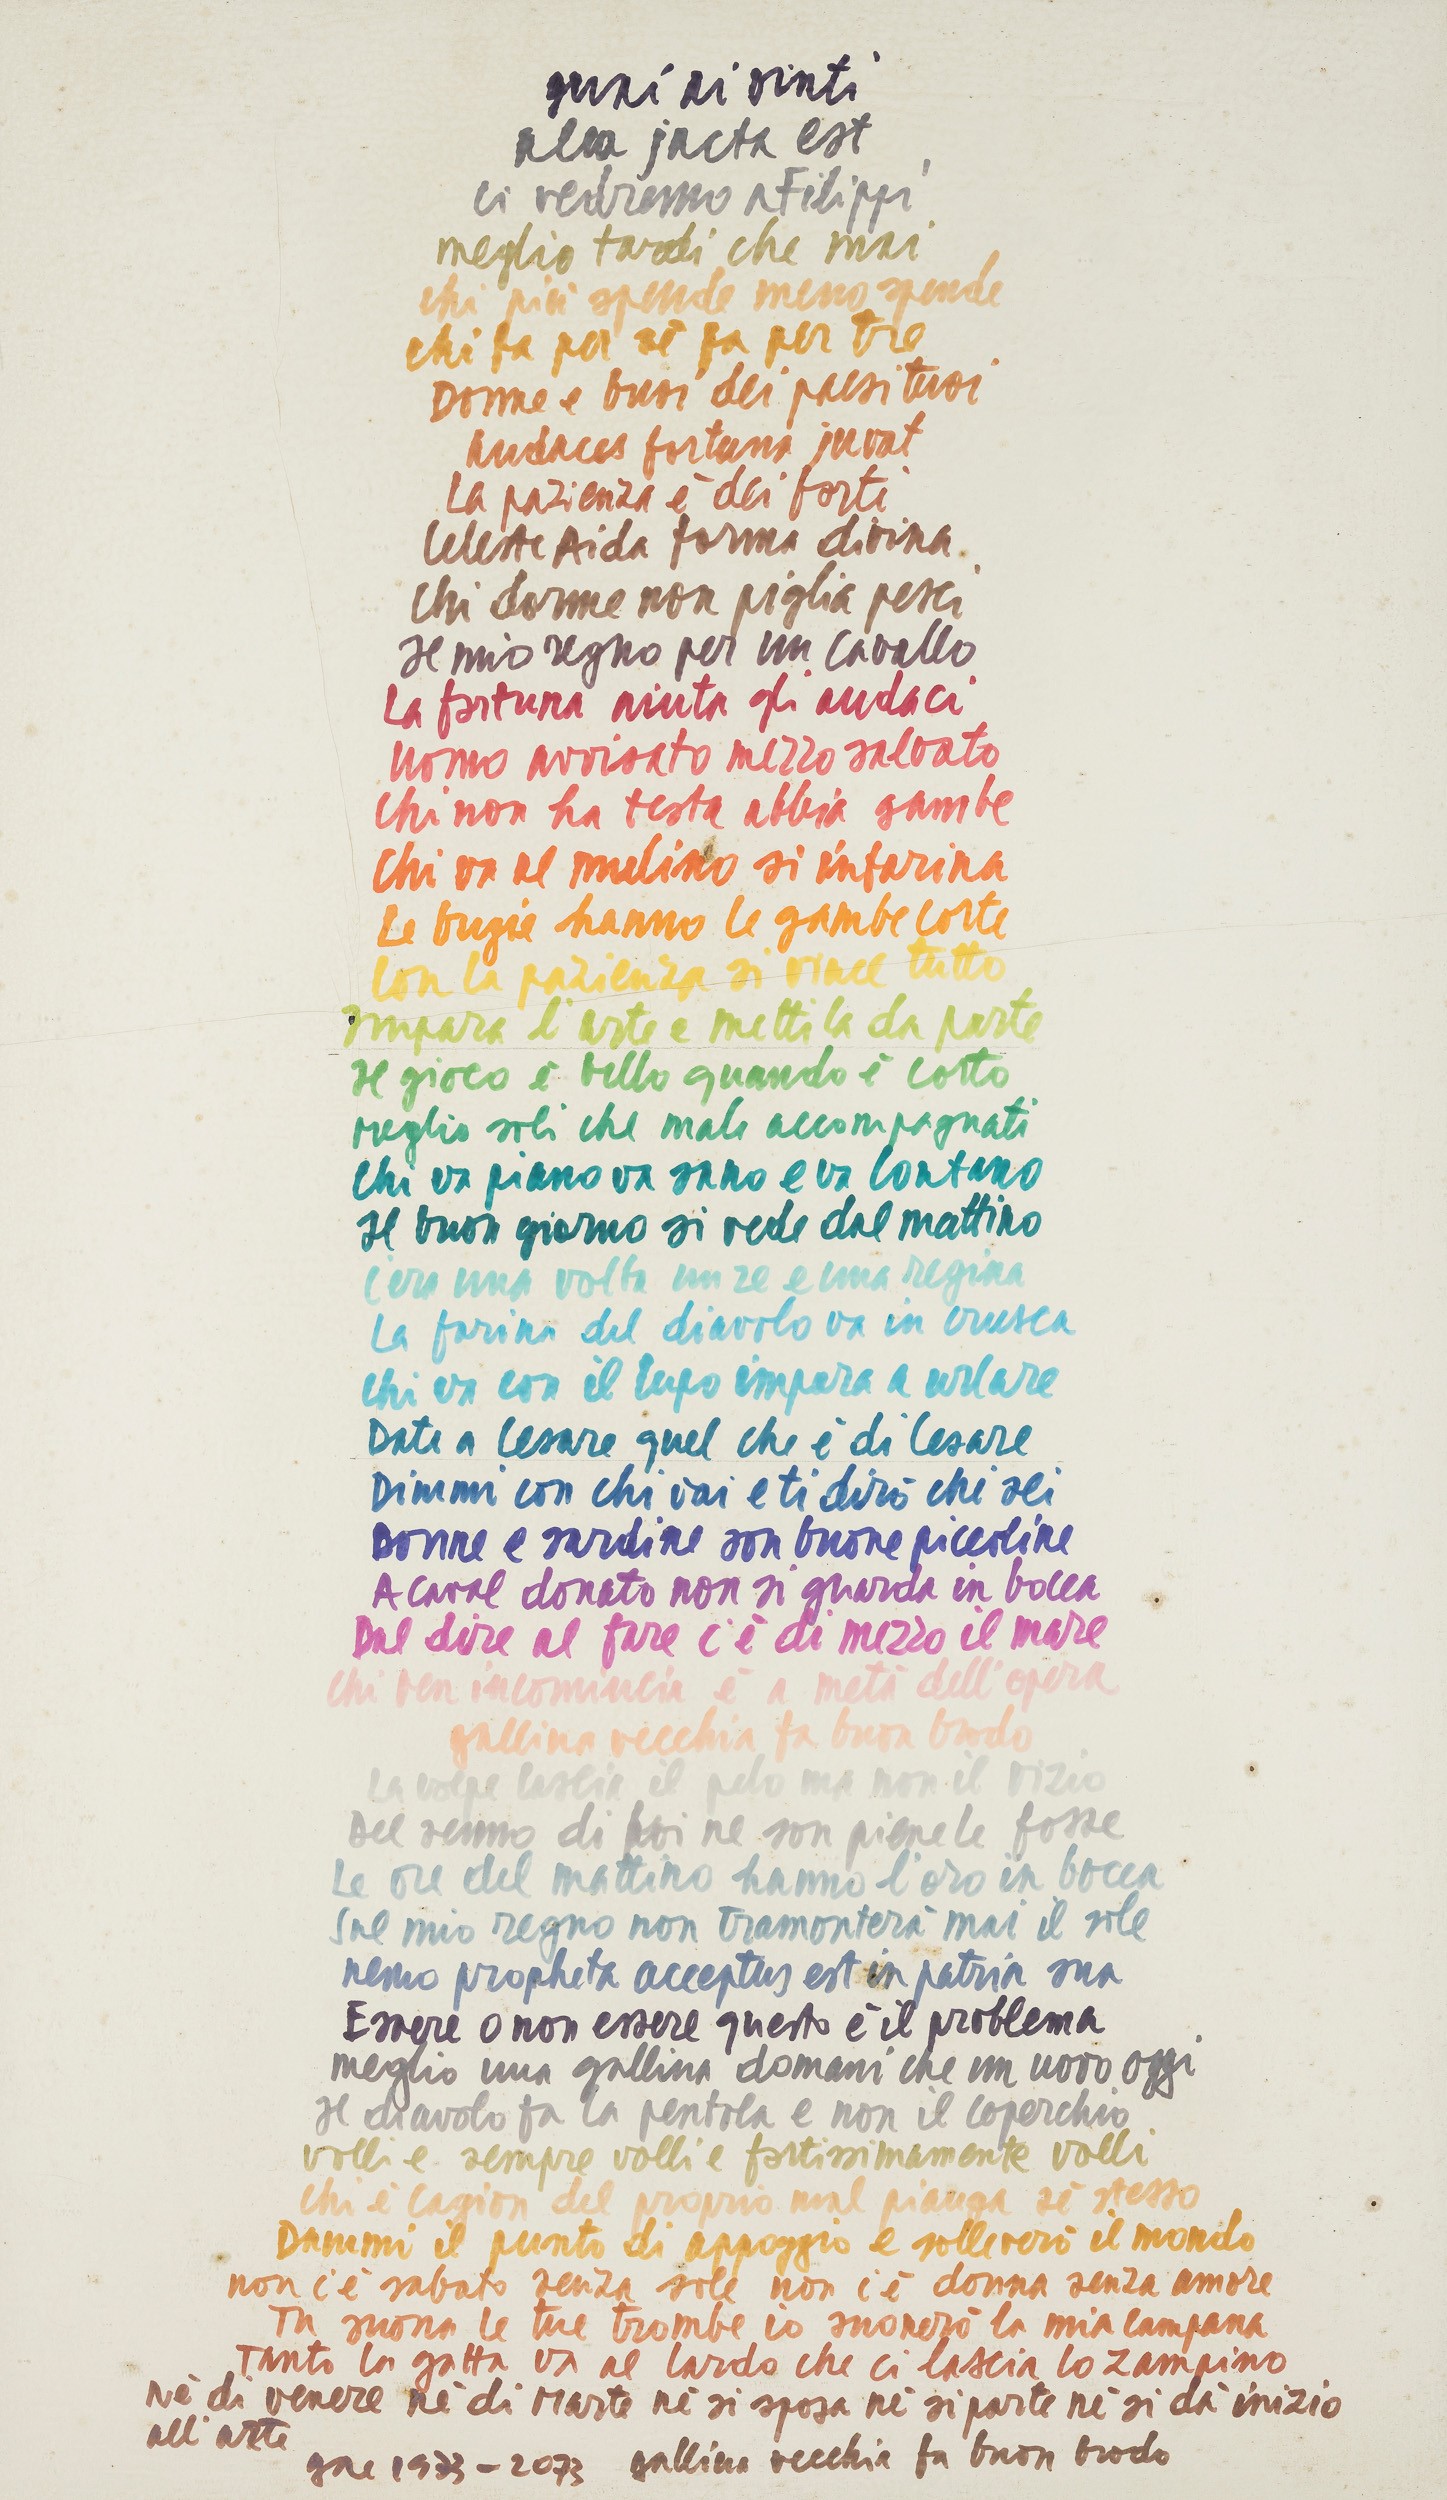 guai ai vinti
alea jacta est
ci vedremo a Filippi
meglio tardi che mai
chi più spende meno spende
chi fa per sé fa per tre
Donne e buoi dei paesi tuoi
Audaces fortuna juvat
La pazienza è dei forti
Celeste Aida forma divina
Chi dorme non piglia pesci
Il mio regno per un cavallo
La fortuna aiuta gli audaci
Uomo avvisato mezzo salvato
Chi non ha testa abbia gambe
Chi va al mulino si infarina
Le bugie hanno le gambe corte
Con la pazienza si vince tutto
Impara l'arte e mettila da parte
Il gioco è bello quando è corto
meglio soli che male accompagnati
Chi va piano va sano e va lontano
Il buon giorno si vede dal mattino
C'era una volta un re e una regina
La farina del diavolo va in crusca
chi va con il lupo impara a urlare
Date a Cesare quel che è di Cesare
Dimmi con chi vai e ti dirò chi sei
Donne e sardine son buone piccoline
A caval donato non si guarda in bocca
Dal dire al fare c'è di mezzo il mare
Chi ben incomincia è a metà dell'opera
gallina vecchia fa buon brodo
La volpe lascia il pelo ma non il vizio
Del senno di poi ne son piene le fosse
Le ore del mattino hanno l'oro in bocca
Sul mio regno non tramonterà mai il sole
nemo propheta acceptus est in patria sua
Essere o non essere questo è il problema
meglio una gallina domani che un uovo oggi
Il diavolo fa la pentola e non il coperchio
volli e sempre volli e fortissimamente volli
Chi è cagion del proprio mal pianga sé stesso
Dammi il punto di appoggio e solleverò il mondo
non c'è sabato senza sole non c'è donna senza amore
Tu suona le tue trombe io suonerò la mia campana
Tanto la gatta va al lardo che ci lascia lo zampino
Né di venere né di Marte né si sposa né si parte né si dà inizio
all'arte
gae 1973 - 2073 gallina vecchia fa buon brodo